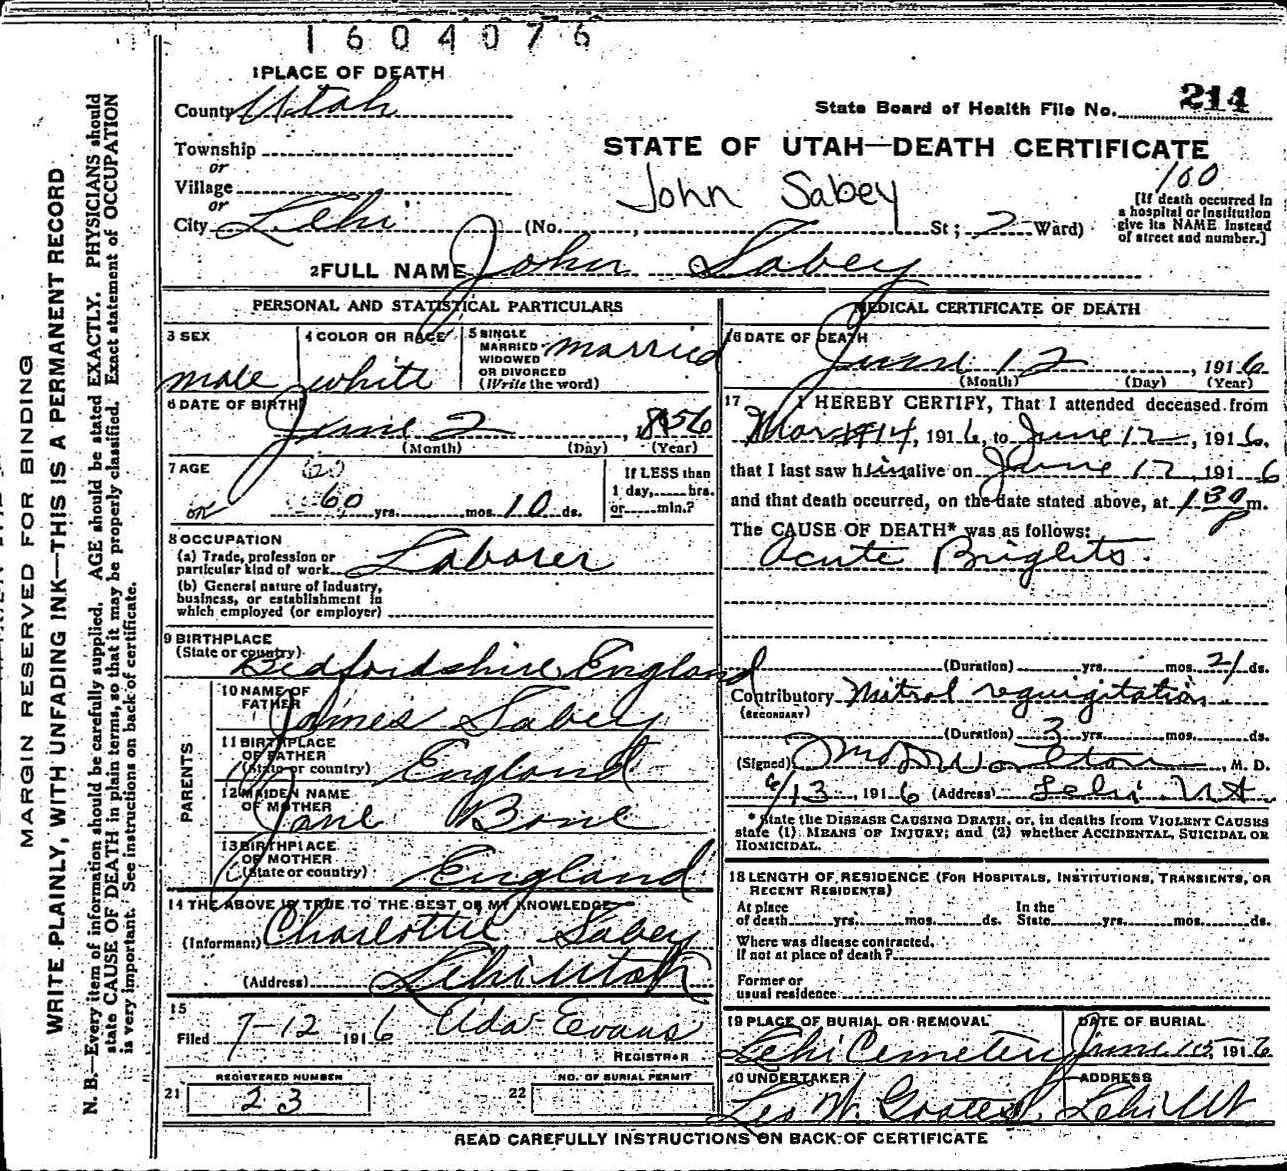 1604076
1 PLACE OF DEATH
County Utah
State Board of Health File No. 214
Township
or
Village
or
City Lehi (No. , St; 2 Ward)
STATE OF UTAH—DEATH CERTIFICATE
John Sabey
160
[If death occurred in
a hospital or institution
give its NAME instead
of street and number.]
2 FULL NAME John Sabey
PERSONAL AND STATISTICAL PARTICULARS
3 SEX
male
4 COLOR OR RACE
white
5 SINGLE
MARRIED
WIDOWED
OR DIVORCED
(Write the word)
married
6 DATE OF BIRTH
June 2, 1856
(Month) (Day) (Year)
7 AGE
60
60 yrs. mos. 10 ds.
If LESS than
1 day, hrs.
or min.?
8 OCCUPATION
(a) Trade, profession or
particular kind of work Laborer
(b) General nature of industry,
business, or establishment in
which employed (or employer)
9 BIRTHPLACE
(State or country)
Bedfordshire England
PARENTS
10 NAME OF
FATHER
James Sabey
11 BIRTHPLACE
OF FATHER
(State or country) England
12 MAIDEN NAME
OF MOTHER
Jane Bone
13 BIRTHPLACE
OF MOTHER
(State or country) England
14 THE ABOVE IS TRUE TO THE BEST OF MY KNOWLEDGE
(Informant) Charlottie Sabey
(Address) Lehi Utah
15
Filed 7-12 1916 Ada Evans
REGISTRAR
REGISTERED NUMBER
21 23
NO. OF BURIAL PERMIT
22
MEDICAL CERTIFICATE OF DEATH
16 DATE OF DEATH
June 12, 1916
(Month) (Day) (Year)
17 I HEREBY CERTIFY, That I attended deceased from
Mar 14, 1916, to June 12, 1916,
that I last saw him alive on June 12, 1916
and that death occurred, on the date stated above, at 130 P m.
The CAUSE OF DEATH* was as follows:
Acute Brights
(Duration) yrs. mos. 21 ds.
Contributory Mitral reguigitation
(SECONDARY)
(Duration) 3 yrs. mos. ds.
(Signed) , M. D.
6/13, 1916 (Address) Lehi Ut
* State the DISEASE CAUSING DEATH, or, in deaths from VIOLENT CAUSES
state (1) MEANS OF INJURY; and (2) whether ACCIDENTAL, SUICIDAL OR
HOMICIDAL.
18 LENGTH OF RESIDENCE (FOR HOSPITALS, INSTITUTIONS, TRANSIENTS, OR
RECENT RESIDENTS)
At place
of death yrs. mos. ds.
In the
State yrs. mos. ds.
Where was disease contracted.
If not at place of death?
Former or
usual residence
19 PLACE OF BURIAL OR REMOVAL
Lehi Cemetery
DATE OF BURIAL
June 15 1916
20 UNDERTAKER
ADDRESS
Lehi Ut
READ CAREFULLY INSTRUCTIONS ON BACK OF CERTIFICATE
MARGIN RESERVED FOR BINDING
WRITE PLAINLY, WITH UNFADING INK—THIS IS A PERMANENT RECORD
N. B.—Every item of information should be carefully supplied. AGE should be stated EXACTLY. PHYSICIANS should
state CAUSE OF DEATH in plain terms, so that it may be properly classified. Exact statement of OCCUPATION
is very important. See instructions on back of certificate.